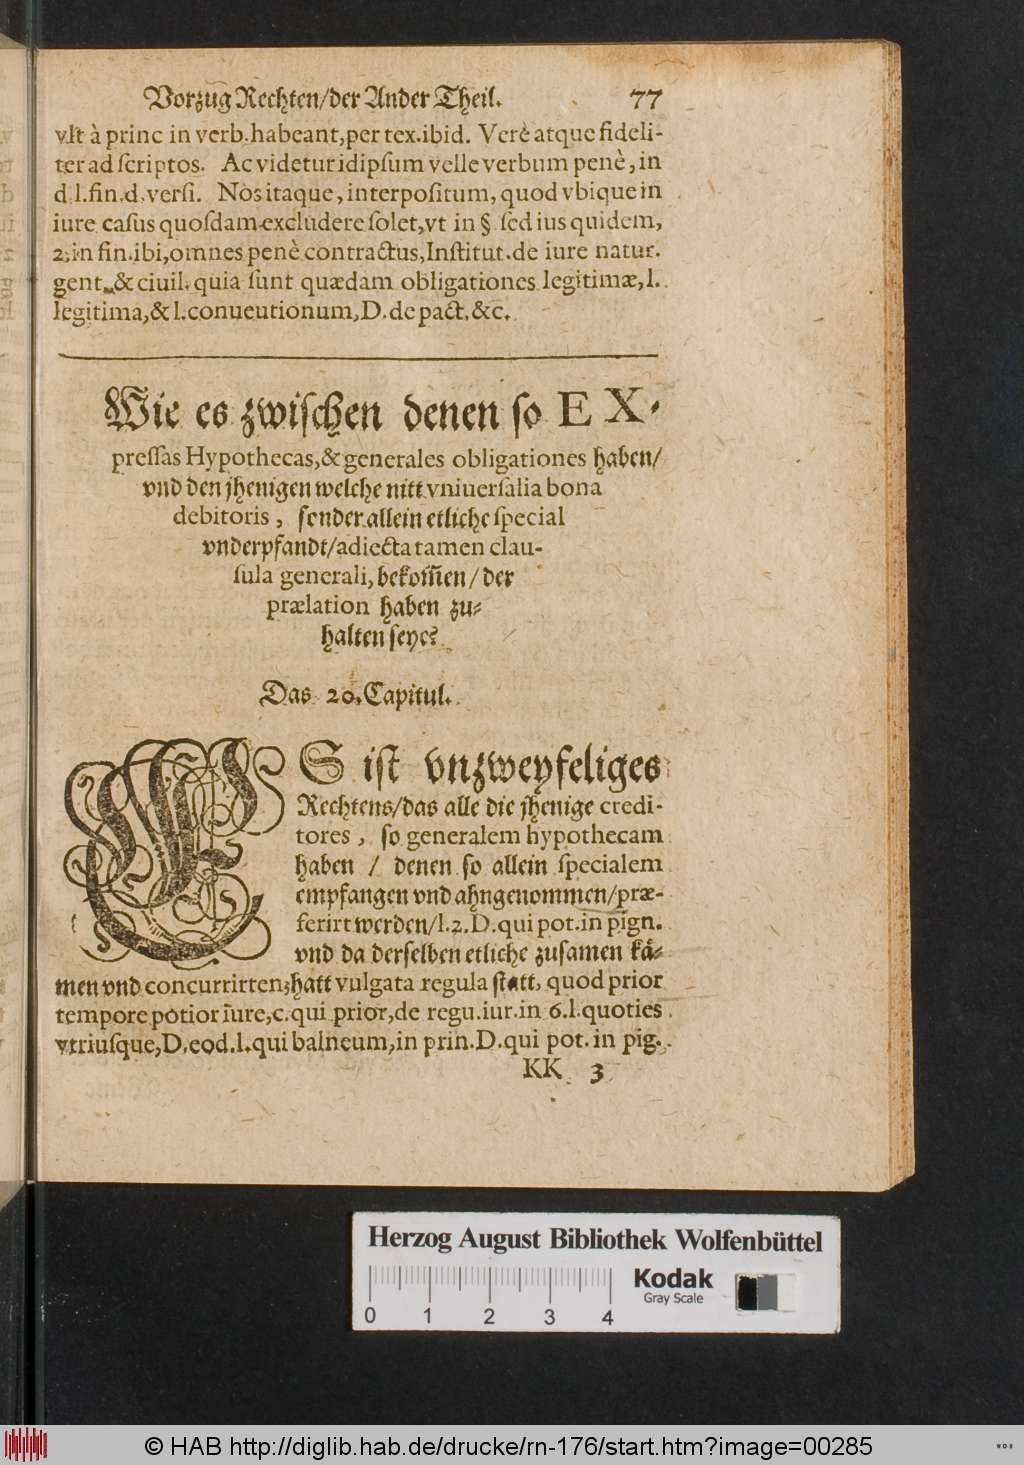 Vorzug Rechten/der Ander Theil. 77
vlt à princ in verb. habeant, per tex. ibid. Verè atque fideli-
ter ad scriptos. Ac videtur idipsum velle verbum penè, in
d l. fin. d. versi. Nos itaque, interpositum, quod vbique in
iure casus quosdam excludere solet, vt in § sed ius quidem,
2. in fin. ibi, omnes penè contractus, Institut. de iure natur.
gent. & ciuil. quia sunt quædam obligationes legitimæ, l.
legitima, & l. conueutionum, D. de pact. &c.
Wie es zwischen denen so EX-
pressas Hypothecas, & generales obligationes haben/
vnd den jhenigen welche nitt vniuersalia bona
debitoris, sonder allein etliche special
vnderpfandt/adiecta tamen clau-
sula generali, bekom̃en/der
prælation haben zu-
halten seye?
Das 20. Capitul.
ES ist vnzweyfeliges
Rechtens/das alle die jhenige credi-
tores, so generalem hypothecam
haben / denen so allein specialem
empfangen vnd ahngenommen/præ-
ferirt werden/l. 2. D. qui pot. in pign.
vnd da derselben etliche zusamen kä-
men vnd concurrirten, hatt vulgata regula statt, quod prior
tempore potior iure, c. qui prior, de regu. iur. in 6. l. quoties
vtriusque, D. eod. l. qui balneum, in prin. D. qui pot. in pig.
KK 3
Herzog August Bibliothek Wolfenbüttel
Kodak
Gray Scale
0 1 2 3 4
© HAB http://diglib.hab.de/drucke/rn-176/start.htm?image=00285